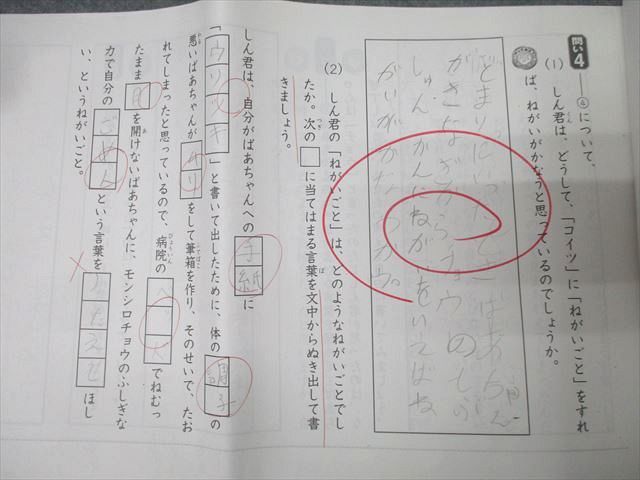 問い4 ④について、
(1) しん君は、どうして、「コイツ」に「ねがいごと」をすれ
ば、ねがいがかなうと思っているのでしょうか。
とまりにいったときばあちゃん
がさなぎからチョウの
しゅんかんにねがいをいえばね
がいがかなう
(2) しん君の「ねがいごと」は、どのようなねがいごとでし
たか。次の□に当てはまる言葉を文中からぬき出して書
きましょう。
しん君は、自分がばあちゃんへの手紙に
「ウソツキ」と書いて出したために、体の調子の
悪いばあちゃんがをして筆箱を作り、そのせいで、たお
れてしまったと思っているので、病院のベッドでねむっ
たまま目を開けないばあちゃんに、モンシロチョウのふしぎな
力で自分のごめんという言葉をほし
い、というねがいごと。